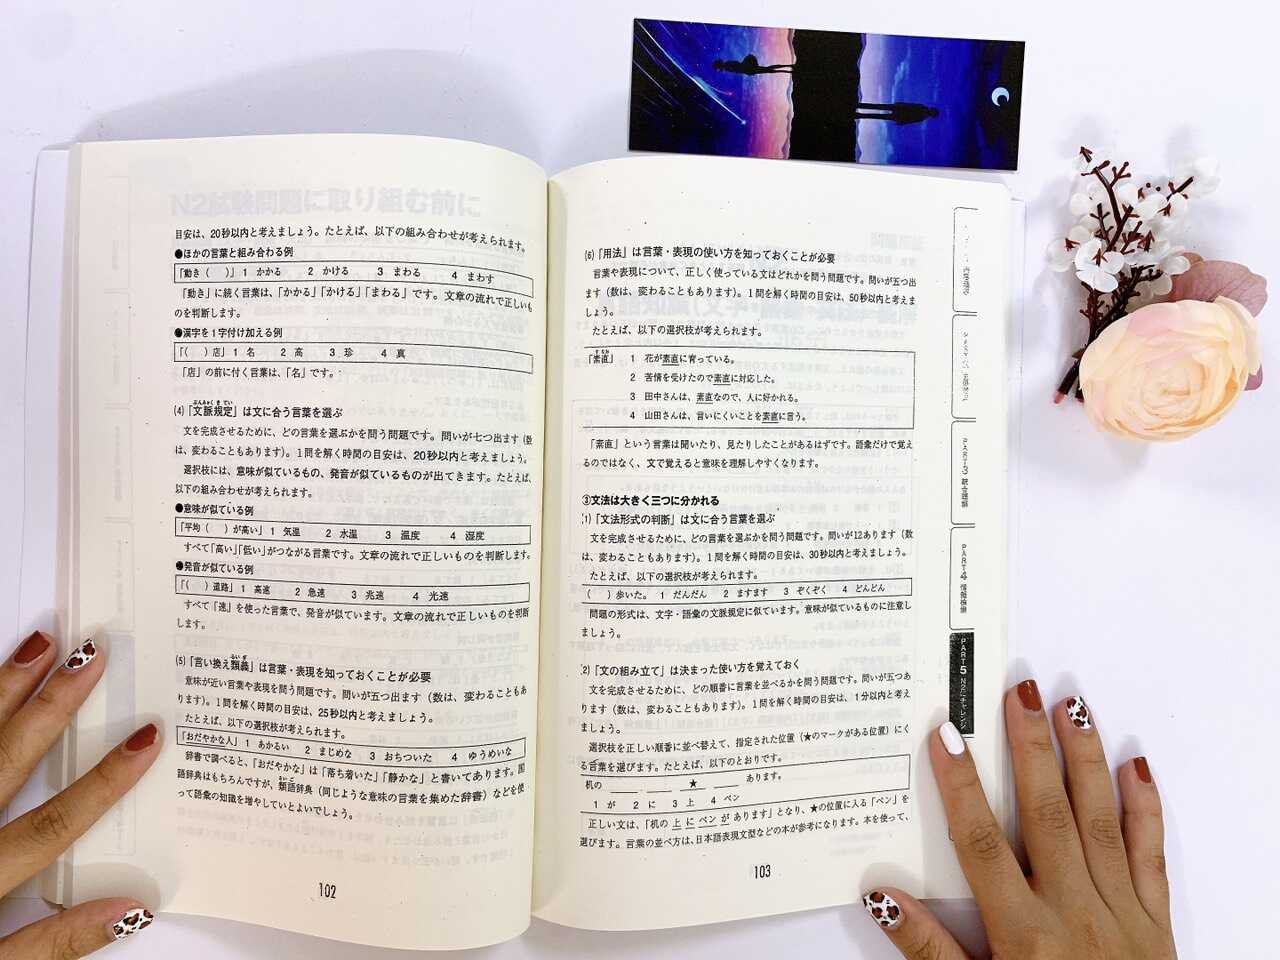 目安は、20秒以内と考えましょう。たとえば、以下の組み合わせが考えられます。
●ほかの言葉と組み合わる例
「動き（　）」 1 かかる　2 かける　3 まわる　4 まわす
「動き」に続く言葉は、「かかる」「かける」「まわる」です。文章の流れで正しいも
のを判断します。
●漢字を1字付け加える例
「（　）店」 1 名　2 高　3 珍　4 真
「店」の前に付く言葉は、「名」です。
ぶんみゃく き てい
(4)「文脈規定」は文に合う言葉を選ぶ
文を完成させるために、どの言葉を選ぶかを問う問題です。問いが七つ出ます（数
は、変わることもあります）。1問を解く時間の目安は、20秒以内と考えましょう。
選択枝には、意味が似ているもの、発音が似ているものが出てきます。たとえば、
以下の組み合わせが考えられます。
●意味が似ている例
「平均（　）が高い」 1 気温　2 水温　3 温度　4 湿度
すべて「高い」「低い」がつながる言葉です。文章の流れで正しいものを判断します。
●発音が似ている例
「（　）道路」 1 高速　2 急速　3 兆速　4 光速
すべて「速」を使った言葉で、発音が似ています。文章の流れで正しいものを判断
します。
るい ぎ
(5)「言い換え類義」は言葉・表現を知っておくことが必要
意味が近い言葉や表現を問う問題です。問いが五つ出ます（数は、変わることもあ
ります）。1問を解く時間の目安は、25秒以内と考えましょう。
たとえば、以下の選択枝が考えられます。
「おだやかな人」 1 あかるい　2 まじめな　3 おちついた　4 ゆうめいな
辞書で調べると、「おだやかな」は「落ち着いた」「静かな」と書いてあります。国
るい ご
語辞典はもちろんですが、類語辞典（同じような意味の言葉を集めた辞書）などを使
って語彙の知識を増やしていくとよいでしょう。
102
(6)「用法」は言葉・表現の使い方を知っておくことが必要
言葉や表現について、正しく使っている文はどれかを問う問題です。問いが五つ出
ます（数は、変わることもあります）。1問を解く時間の目安は、50秒以内と考えま
しょう。
たとえば、以下の選択枝が考えられます。
す なお
「素直」 1 花が素直に育っている。
2 苦情を受けたので素直に対応した。
3 田中さんは、素直なので、人に好かれる。
4 山田さんは、言いにくいことを素直に言う。
「素直」という言葉は聞いたり、見たりしたことがあるはずです。語彙だけで覚え
るのではなく、文で覚えると意味を理解しやすくなります。
③文法は大きく三つに分かれる
(1)「文法形式の判断」は文に合う言葉を選ぶ
文を完成させるために、どの言葉を選ぶかを問う問題です。問いが12あります（数
は、変わることもあります）。1問を解く時間の目安は、30秒以内と考えましょう。
たとえば、以下の選択枝が考えられます。
（　）歩いた。 1 だんだん　2 ますます　3 ぞくぞく　4 どんどん
問題の形式は、文字・語彙の文脈規定に似ています。意味が似ているものに注意し
ましょう。
(2)「文の組み立て」は決まった使い方を覚えておく
文を完成させるために、どの順番に言葉を並べるかを問う問題です。問いが五つあ
ります（数は、変わることもあります）。1問を解く時間の目安は、1分以内と考え
ましょう。
選択枝を正しい順番に並べ替えて、指定された位置（★のマークがある位置）にく
る言葉を選びます。たとえば、以下のとおりです。
机の ＿ ＿ ★ ＿ あります。
1 が　2 に　3 上　4 ペン
正しい文は、「机の 上 に ペン が あります」となり、★の位置に入る「ペン」を
選びます。言葉の並べ方は、日本語表現文型などの本が参考になります。本を使って、
103
PART3 統合理解
PART4 情報検索
PART5 N2にチャレンジ